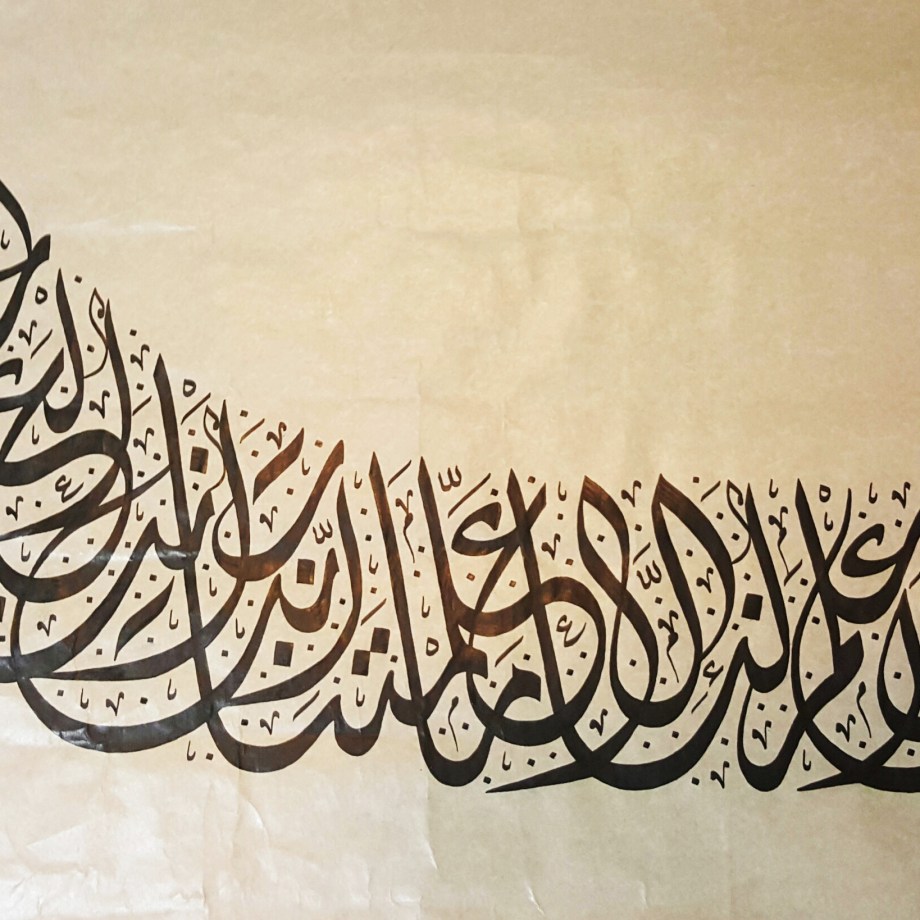 علم لنا إلا ما علمتنا إنك أنت العليم